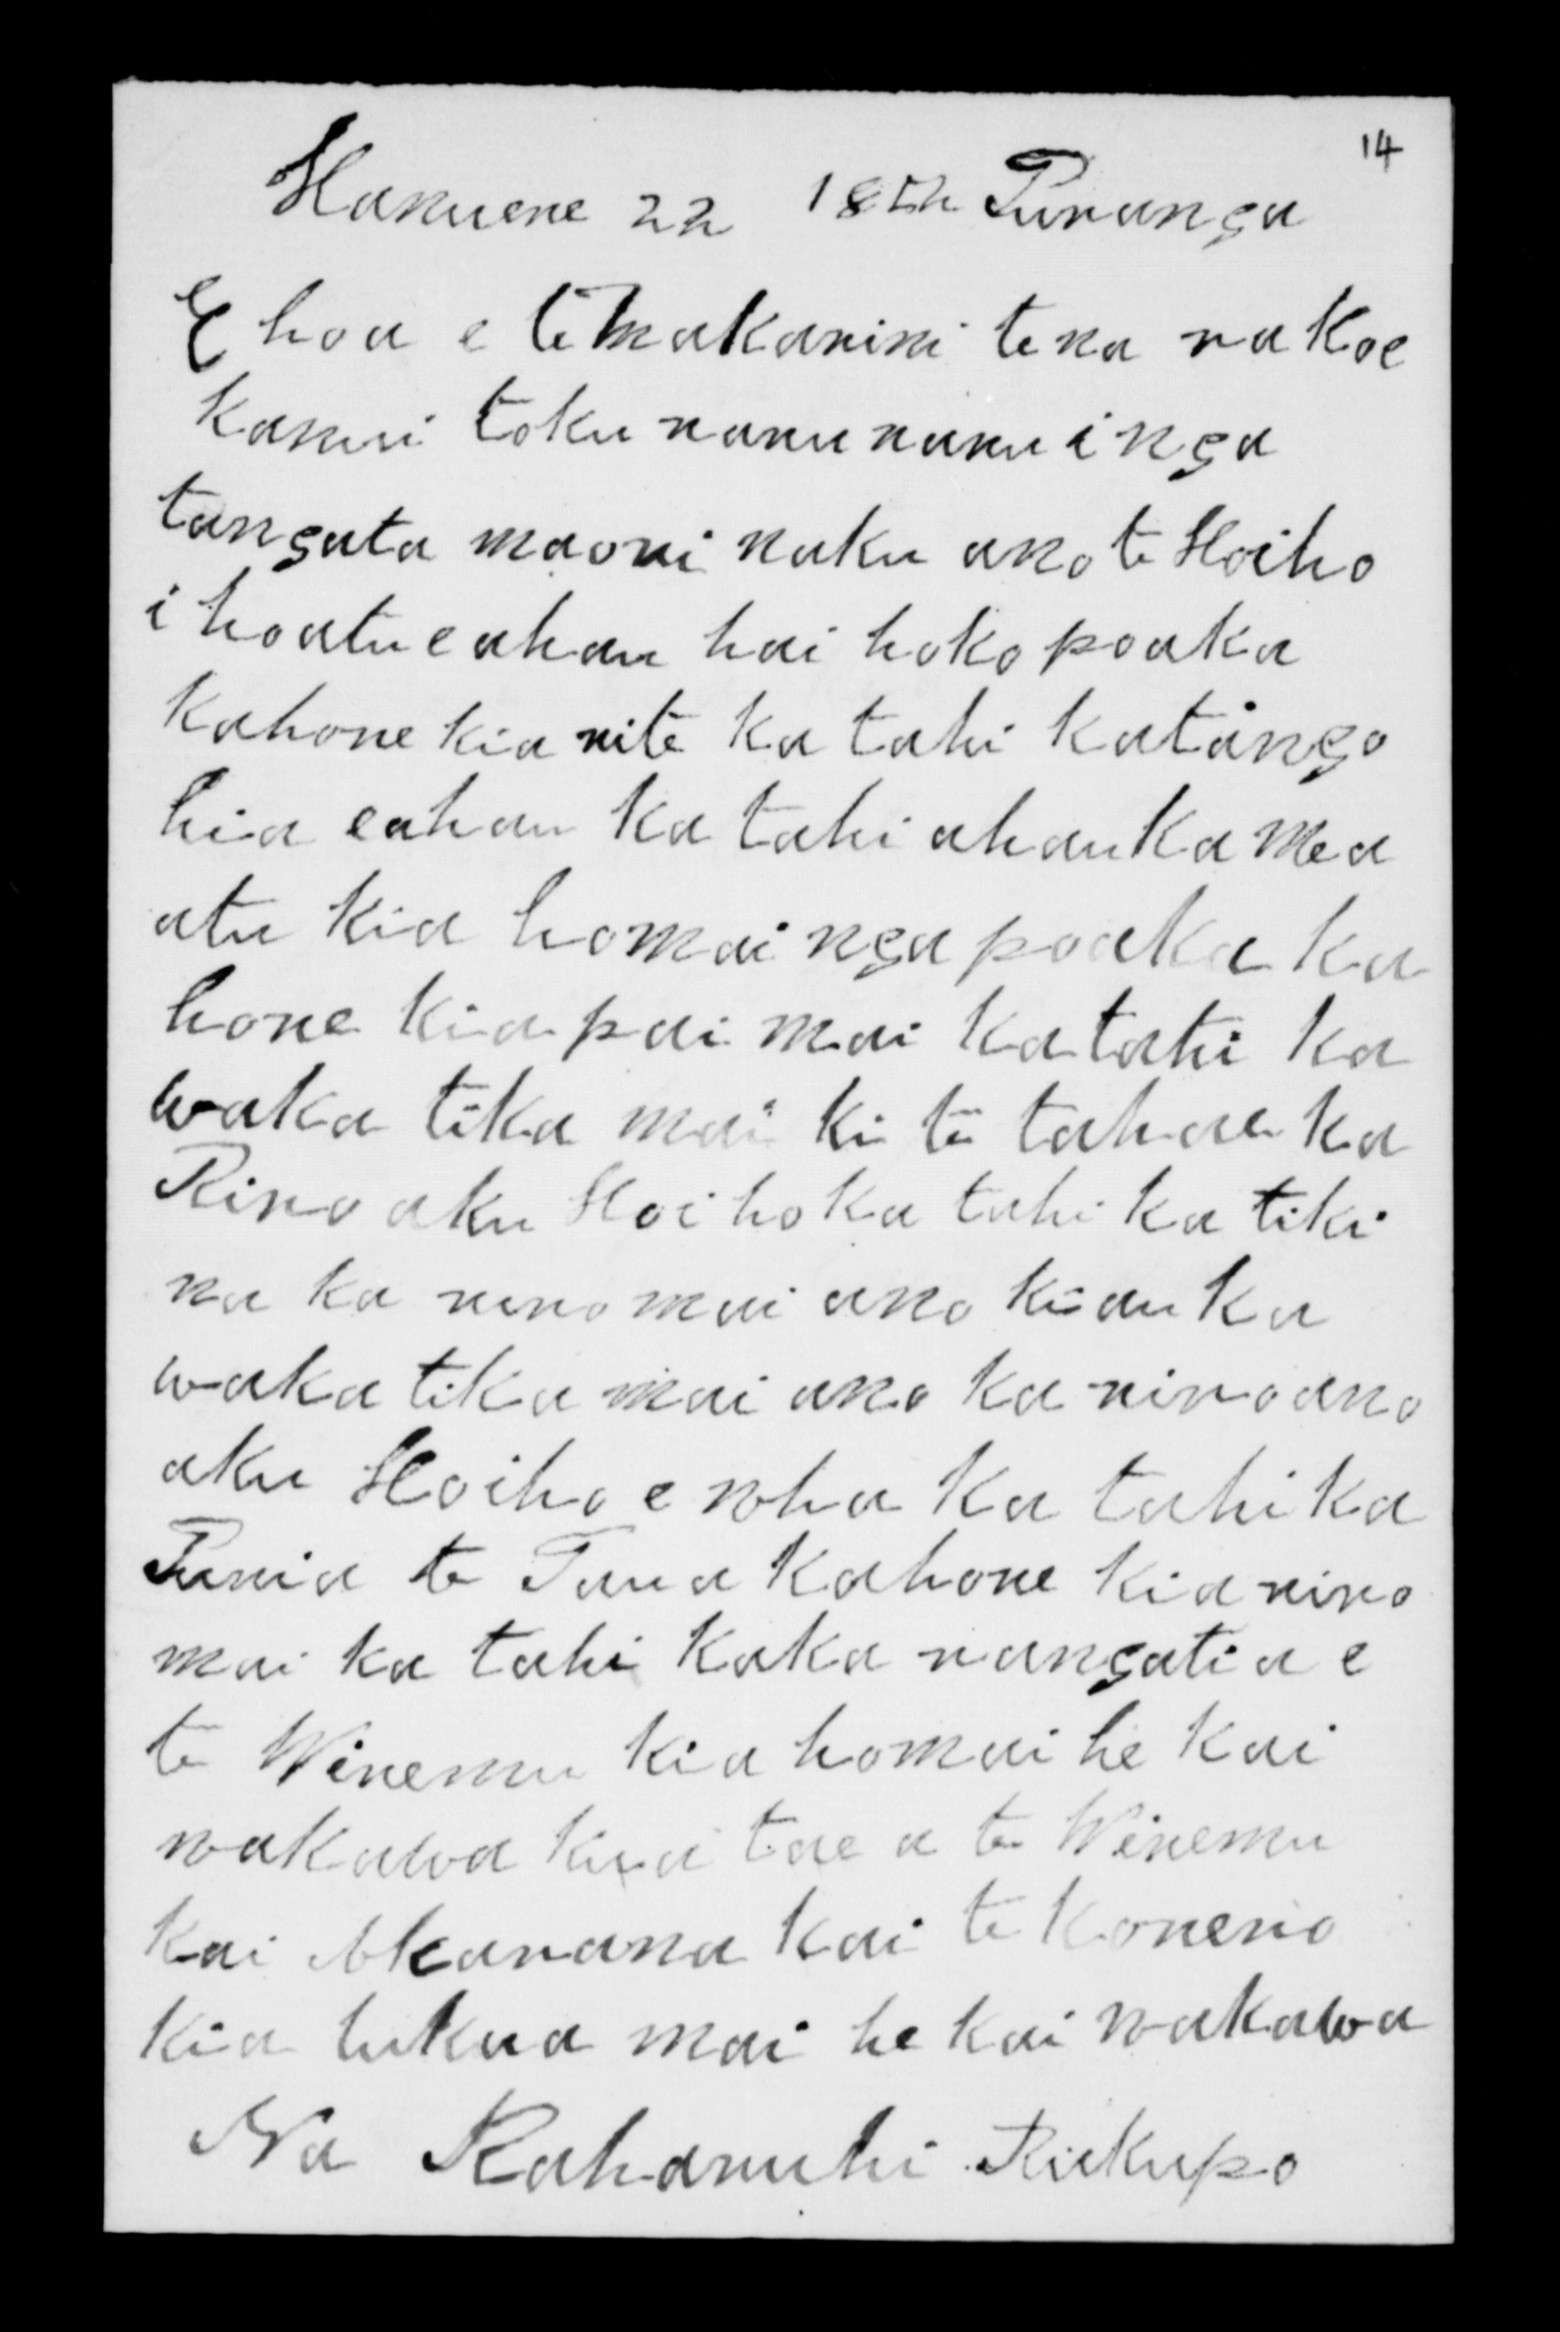 14
Hanuere 22 1852 Turanga
E hoa e te Makarini tena ra koe
kanui toku raruraru i nga
tangata maori naku ano te Hoiho
i hoatu e ahau hai hoko poaka
kahore kia rite ka tahi ka tango
hia e ahau ka tahi ahau ka mea
atu kia homai nga poaka ka
hore kia pai mai ka tahi ka
waka tika mai ki te tahae ka
Riro aku Hoiho ka tahi ka tiki
na ka riro mai ano ki au ka
waka tika mai ano ka riro ano
aku Hoiho e wha ka tahi ka
Turia te Taua kahore kia riro
mai ka tahi ka karangatia e
te Wiremu kia homai he kai
wakawa kua tae a te Wiremu
kai Akarana kai te Korerio
kia tukua mai he kai wakawa
Na Raharuhi Rukupo